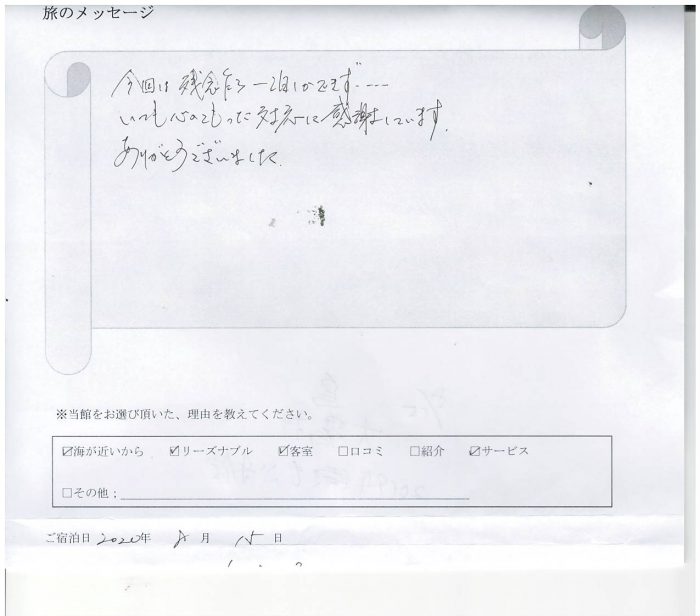 旅のメッセージ
今回は残念ながら一泊しかできず・・・・
いつも心のこもった対応に感謝しています。
ありがとうございました。
※当館をお選び頂いた、理由を教えてください。
☑海が近いから ☑リーズナブル ☑客室 □口コミ □紹介 ☑サービス
□その他：
ご宿泊日 2020年 8月 15日